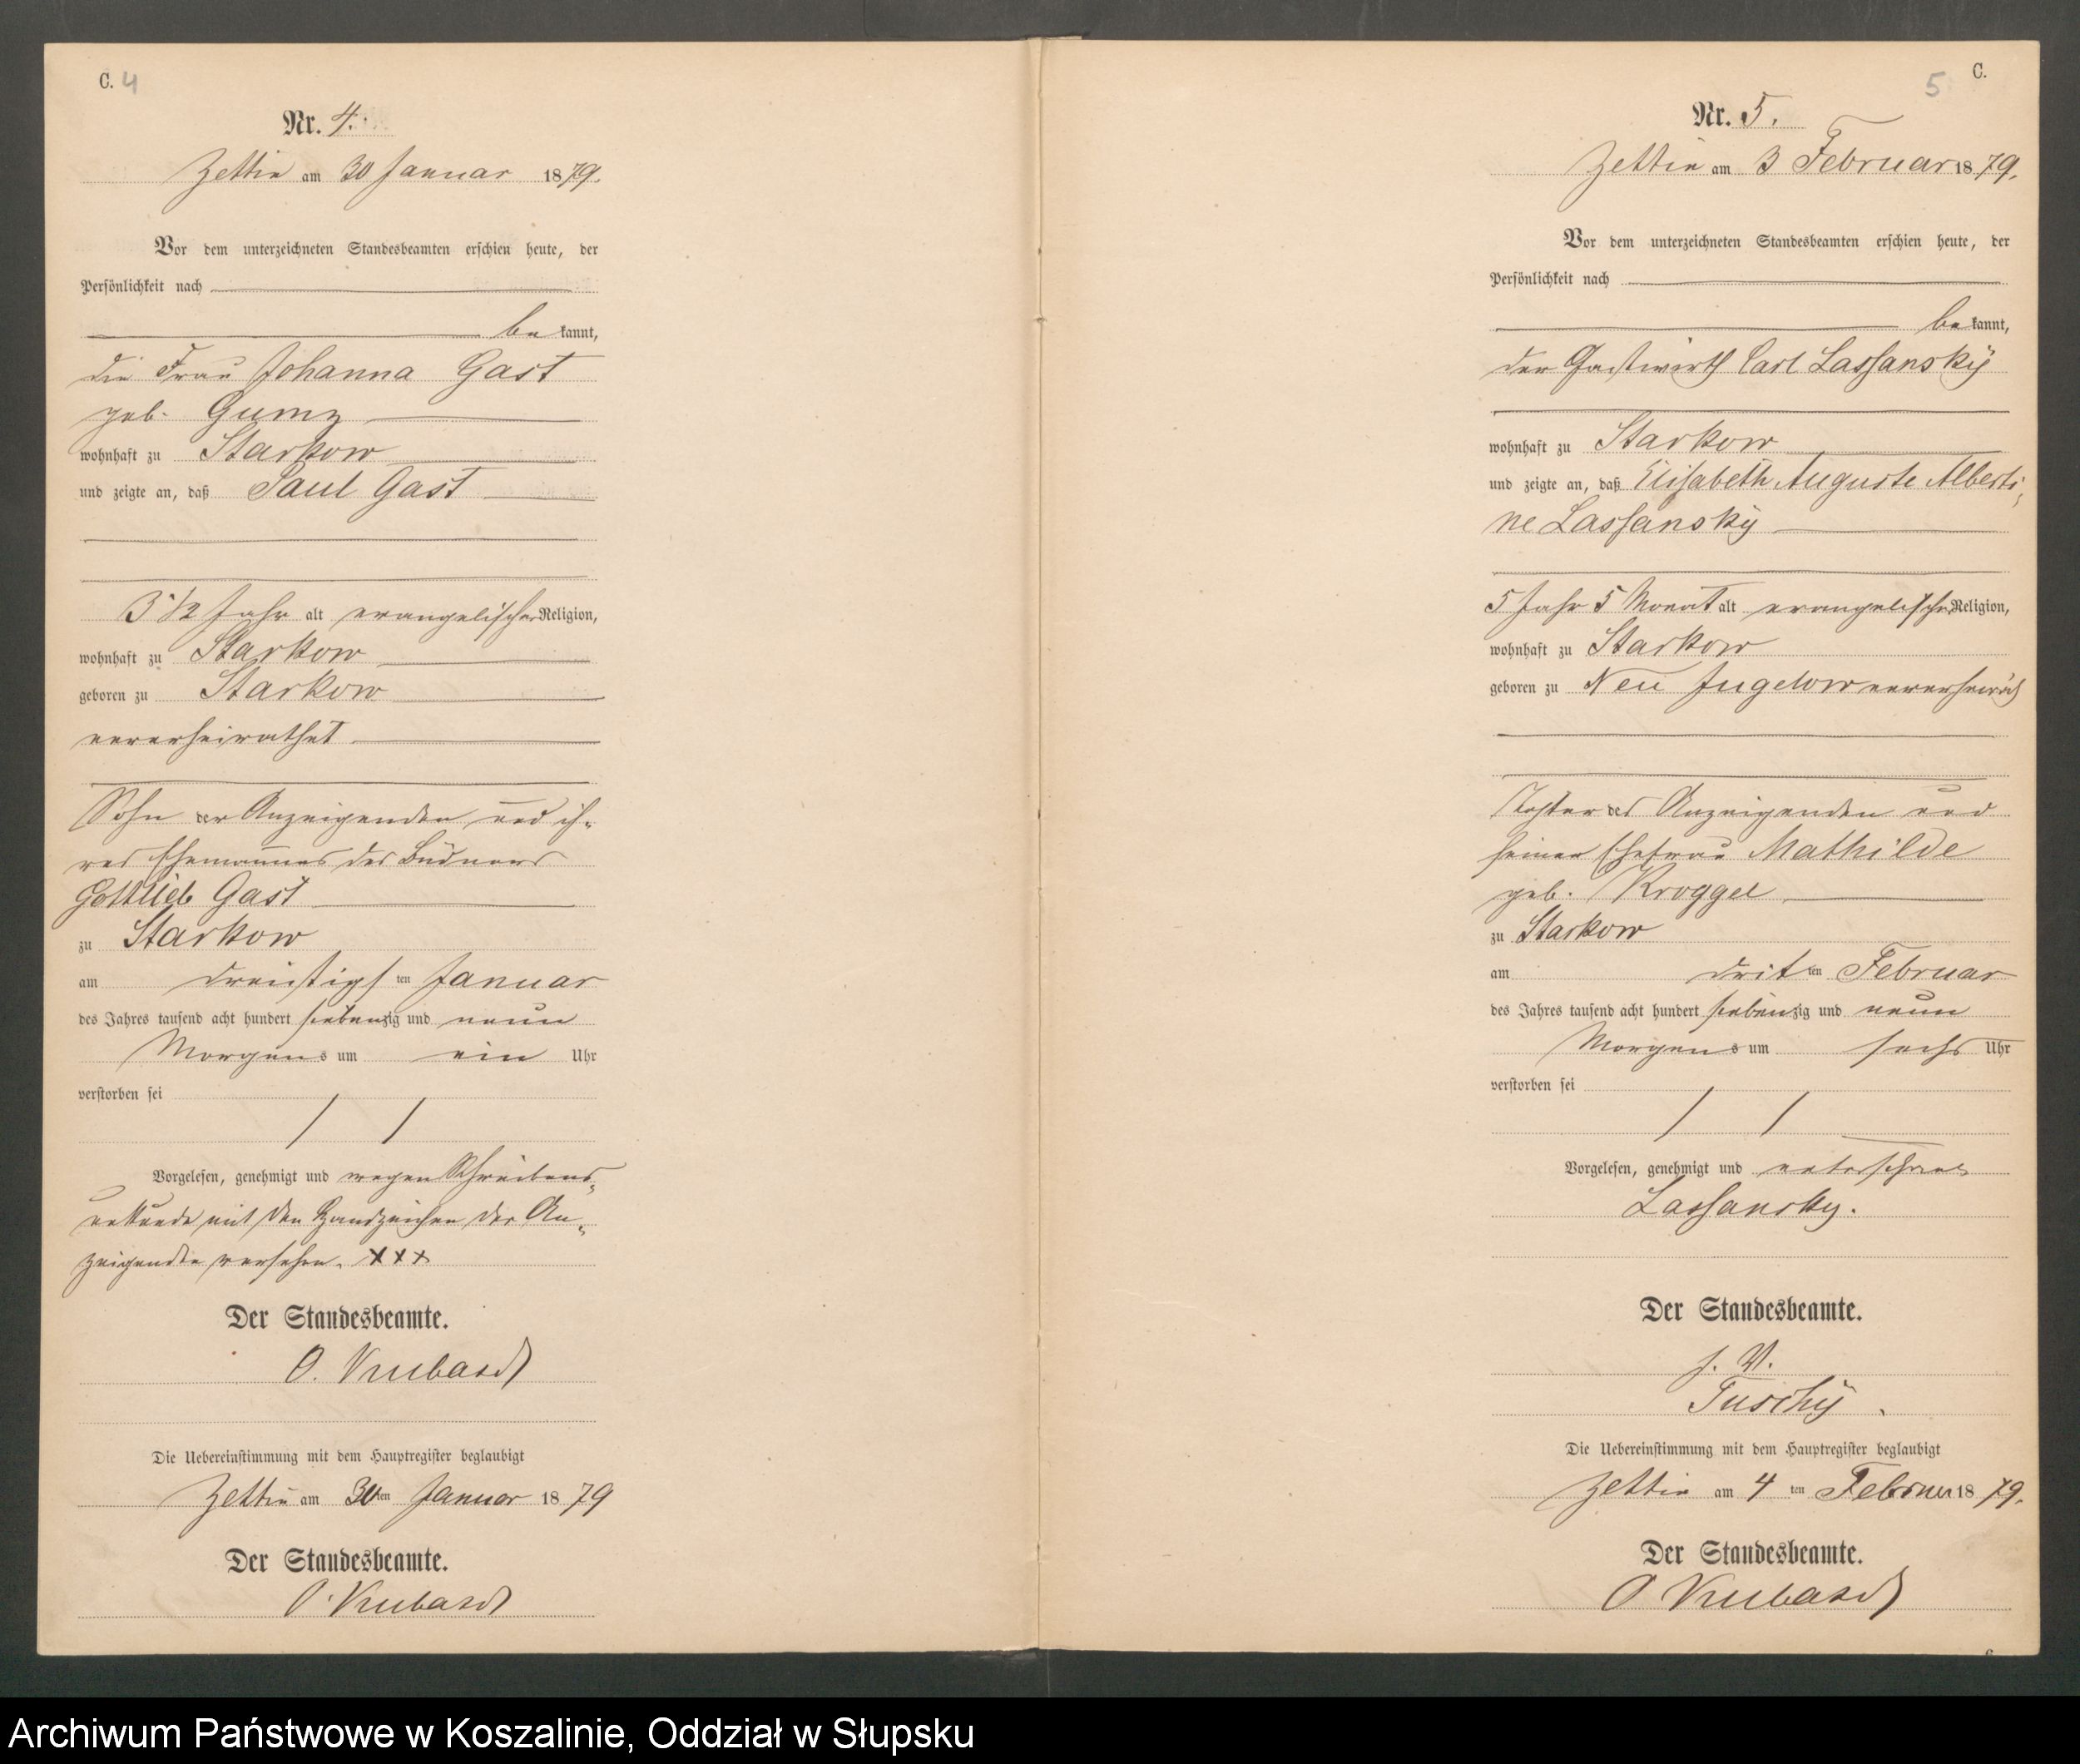 C. 4
Nr. 4.
Zettin am 30 Januar 1879.
Vor dem unterzeichneten Standesbeamten erschien heute, der
Persönlichkeit nach
be kannt,
die Frau Johanna Gast
geb. Gumz
wohnhaft zu Starkow
und zeigte an, daß Paul Gast
3 1/2 Jahr alt evangelischer Religion,
wohnhaft zu Starkow
geboren zu Starkow
unverheirathet
Sohn der Anzeigenden und ih-
res Ehemannes des Büdners
Gottlieb Gast
zu Starkow
am dreißigsten Januar
des Jahres tausend acht hundert siebenzig und neun
Morgens um ein Uhr
verstorben sei
Vorgelesen, genehmigt und wegen Schreibens-
unkunde mit den Handzeichen der An-
zeigenden versehen. XXX
Der Standesbeamte.
O.
Die Uebereinstimmung mit dem Hauptregister beglaubigt
Zettin am 30ten Januar 1879
Der Standesbeamte.
O.
5 C.
Nr. 5.
Zettin am 3 Februar 1879.
Vor dem unterzeichneten Standesbeamten erschien heute, der
Persönlichkeit nach
be kannt,
der Gastwirth Carl Lassansky
wohnhaft zu Starkow
und zeigte an, daß Elisabeth Auguste Alberti-
ne Lassansky
5 Jahr 5 Monat alt evangelischer Religion,
wohnhaft zu Starkow
geboren zu Neu Jugelow
Tochter des Anzeigenden und
seiner Ehefrau Mathilde
geb. Kroggel
zu Starkow
am dritten Februar
des Jahres tausend acht hundert siebenzig und neun
Morgens um sechs Uhr
verstorben sei
Vorgelesen, genehmigt und unterschrieben
Lassansky.
Der Standesbeamte.
J. V.
Tuschy
Die Uebereinstimmung mit dem Hauptregister beglaubigt
Zettin am 4 ten Februar 1879.
Der Standesbeamte.
O
Archiwum Państwowe w Koszalinie, Oddział w Słupsku